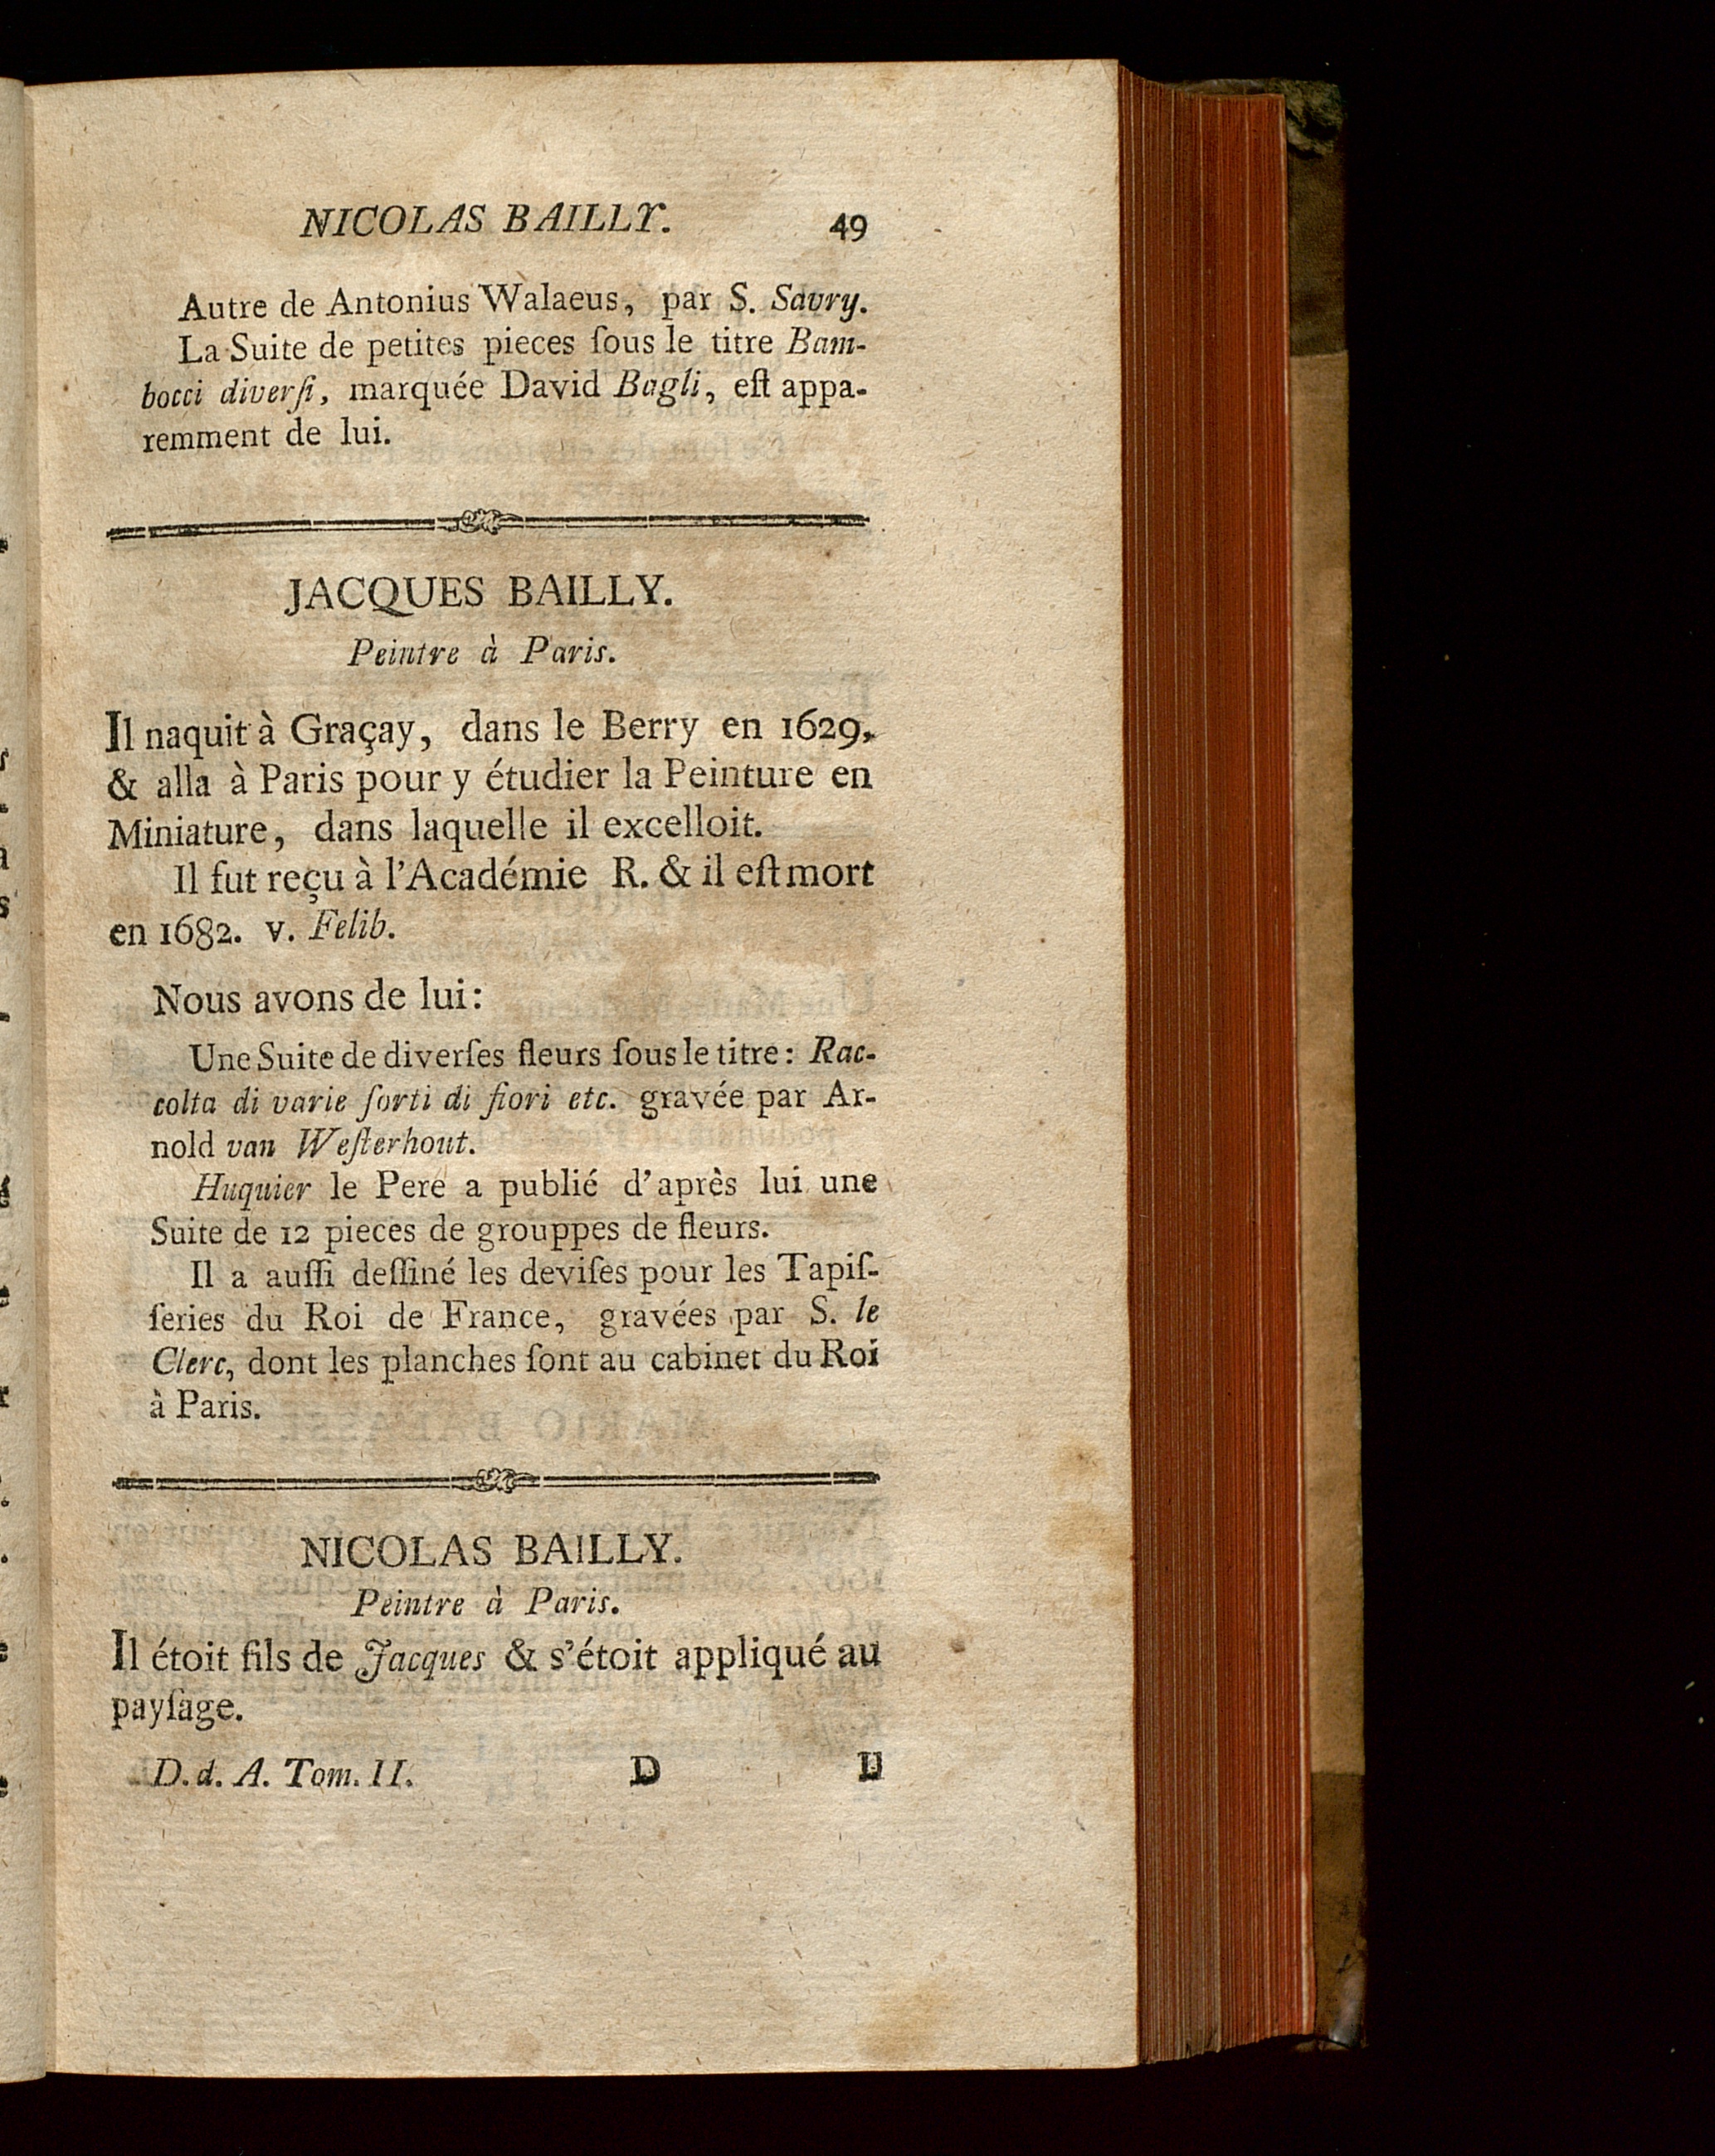 NICOLAS BAILLY. 49
Autre de Antonius Walaeus, par S. Savry.
La Suite de petites pieces ſous le titre Bam-
bocci diverſi, marquée David Bagli, eſt appa-
remment de lui.
JACQUES BAILLY.
Peintre à Paris.
Il naquit à Graçay, dans le Berry en 1629,
& alla à Paris pour y étudier la Peinture en
Miniature, dans laquelle il excelloit.
Il fut reçu à l'Académie R. & il eſt mort
en 1682. v. Felib.
Nous avons de lui:
Une Suite de diverſes fleurs ſous le titre: Rac-
colta di varie ſorti di fiori etc. gravée par Ar-
nold van Weſterhout.
Huquier le Pere a publié d'après lui une
Suite de 12 pieces de grouppes de fleurs.
Il a auſſi deſſiné les deviſes pour les Tapiſ-
ſeries du Roi de France, gravées par S. le
Clerc, dont les planches ſont au cabinet du Roi
à Paris.
NICOLAS BAILLY.
Peintre à Paris.
Il étoit fils de Jacques & s'étoit appliqué au
payſage.
D. d. A. Tom. II. D Il